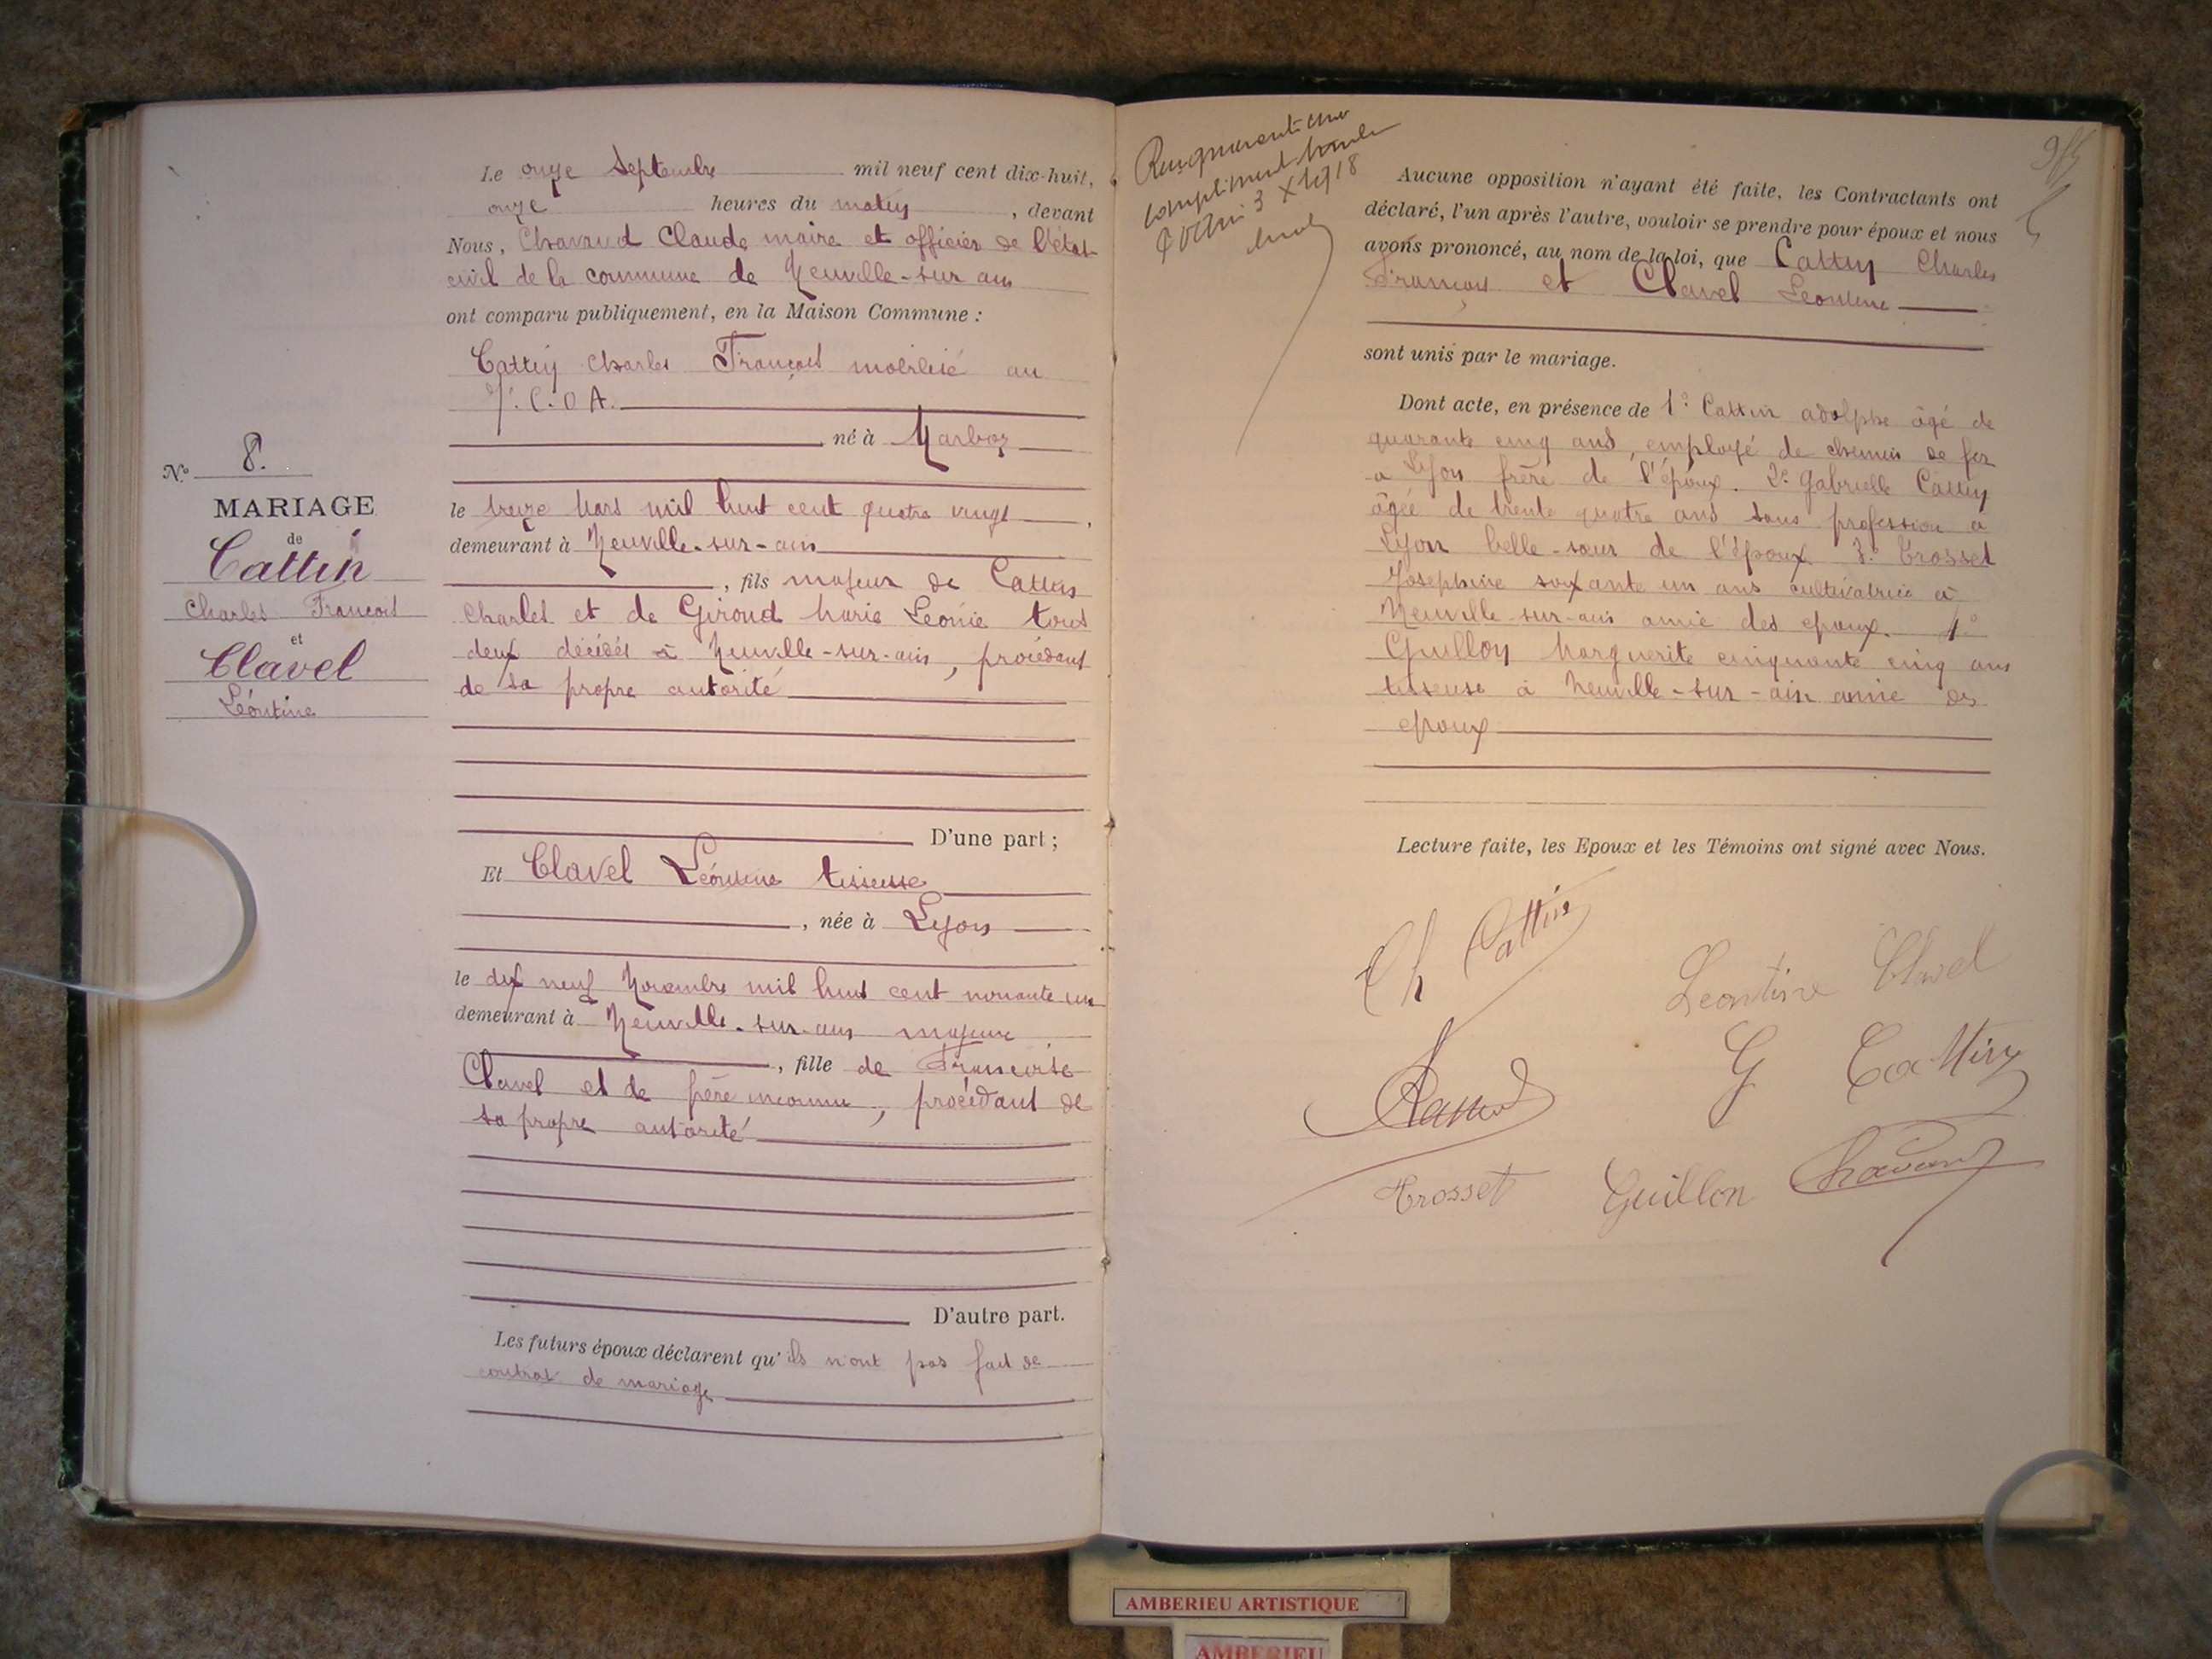 Le onze Septembre mil neuf cent dix-huit,
onze heures du matin, devant
Nous, Chavand Claude maire et officier de l'état
civil de la commune de Neuville-sur ain
ont comparu publiquement, en la Maison Commune :
Cattin Charles François mobilisé au
C.O.A.
né à Marboz
le treize Mars mil huit cent quatre vingt,
demeurant à Neuville-sur-ain
, fils majeur de Cattin
Charles et de Giroud Marie Leonie tous
deux décédés à Neuville-sur-ain, procédant
de sa propre autorité
D'une part ;
Et Clavel Léontine tisseuse
, née à Lyon
le dix neuf Novembre mil huit cent nonante un
demeurant à Neuville-sur-ain majeure
, fille de Francoise
Clavel et de père inconnu, procédant de
sa propre autorité
D'autre part.
Les futurs époux déclarent qu'ils n'ont pas fait de
contrat de mariage
N° 8.
MARIAGE
de
Cattin
Charles François
et
Clavel
Léontine
Aucune opposition n'ayant été faite, les Contractants ont
déclaré, l'un après l'autre, vouloir se prendre pour époux et nous
avons prononcé, au nom de la loi, que Cattin Charles
François et Clavel Leontine
sont unis par le mariage.
Dont acte, en présence de 1° Cattin adolphe âgé de
quarante cinq ans, employé de chemin de fer
a Lyon frère de l'époux. 2° Gabrielle Cattin
âgée de trente quatre ans sans profession a
Lyon belle-sœur de l'époux 3° Trosset
Josephine soixante un ans cultivatrice à
Neuville-sur-ain amie des epoux. 4°
Guillon Marguerite cinquante cinq ans
tisseuse à Neuville-sur-ain amie des
epoux
Lecture faite, les Epoux et les Témoins ont signé avec Nous.
Ch Cattin
Leontine Clavel
G Cattin
Trosset Guillon Chavand
AMBERIEU ARTISTIQUE
AMBERIEU